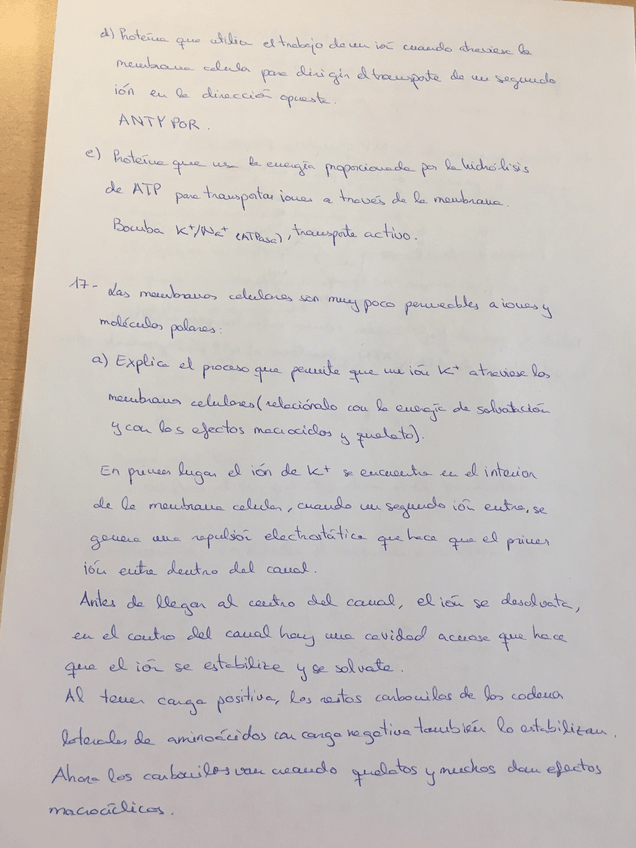 d) Proteína que utiliza el trabajo de un ión cuando atraviese la
membrana celular para dirigir el transporte de un segundo
ión en la dirección opuesta.
ANTYPOR.
e) Proteína que usa la energía proporcionada por la hidrólisis
de ATP para transportar iones a través de la membrana.
Bomba K⁺/Na⁺ (ATPasa), transporte activo.
17- Las membranas celulares son muy poco permeables a iones y
moléculas polares:
a) Explica el proceso que permite que un ión K⁺ atraviese las
membranas celulares (relaciónalo con la energía de solvatación
y con los efectos macrociclos y quelato).
En primer lugar el ión de K⁺ se encuentra en el interior
de la membrana celular, cuando un segundo ión entre, se
genera una repulsión electrostática que hace que el primer
ión entre dentro del canal.
Antes de llegar al centro del canal, el ión se desolvata,
en el centro del canal hay una cavidad acuosa que hace
que el ión se estabilize y se solvate.
Al tener carga positiva, los restos carbonilos de las cadena
laterales de aminoácidos con carga negativa también lo estabilizan.
Ahora los carbonilos van creando quelatos y muchos dan efectos
macrocíclicos.